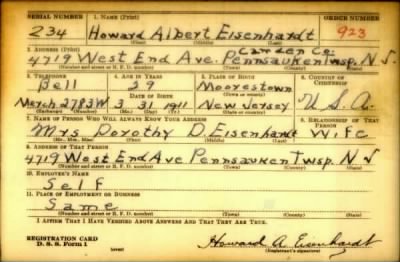 SERIAL NUMBER 1. NAME (Print) ORDER NUMBER
234 Howard Albert Eisenhardt 923
(First) (Middle) (Last)
2. ADDRESS (Print) Camden Co.
4719 West End Ave. Pennsauken Twsp. N J.
(Number and street or R. F. D. number) (Town) (County) (State)
3. TELEPHONE 4. AGE IN YEARS 5. PLACE OF BIRTH 6. COUNTRY OF CITIZENSHIP
Bell 29 Moorestown
DATE OF BIRTH (Town or county)
Merch 2783W 3 31 1911 New Jersey U.S.A.
(Exchange) (Number) (Mo.) (Day) (Yr.) (State or country)
7. NAME OF PERSON WHO WILL ALWAYS KNOW YOUR ADDRESS 8. RELATIONSHIP OF THAT PERSON
Mrs Dorothy D. Eisenhardt Wife
(Mr., Mrs., Miss) (First) (Middle) (Last)
9. ADDRESS OF THAT PERSON
4719 West End Ave Pennsauken Twsp. N J
(Number and street or R. F. D. number) (Town) (County) (State)
10. EMPLOYER'S NAME
Self
11. PLACE OF EMPLOYMENT OR BUSINESS
Same
(Number and street or R. F. D. number) (Town) (County) (State)
I AFFIRM THAT I HAVE VERIFIED ABOVE ANSWERS AND THAT THEY ARE TRUE.
REGISTRATION CARD
D. S. S. Form 1 (over) Howard A Eisenhardt
(Registrant's signature)